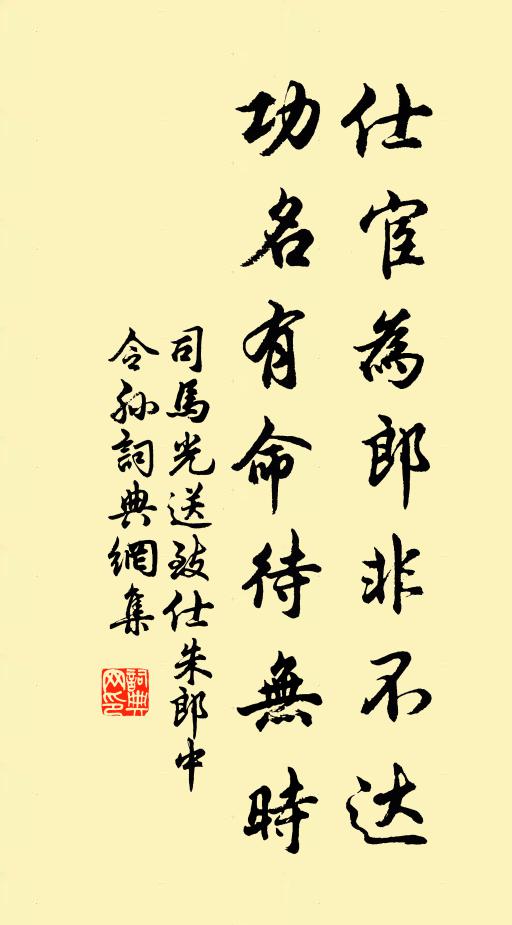 仕宦為郎非不达
功名有命待無時
司馬光送致仕朱郎中
令孙詞典網集
詞典
网印